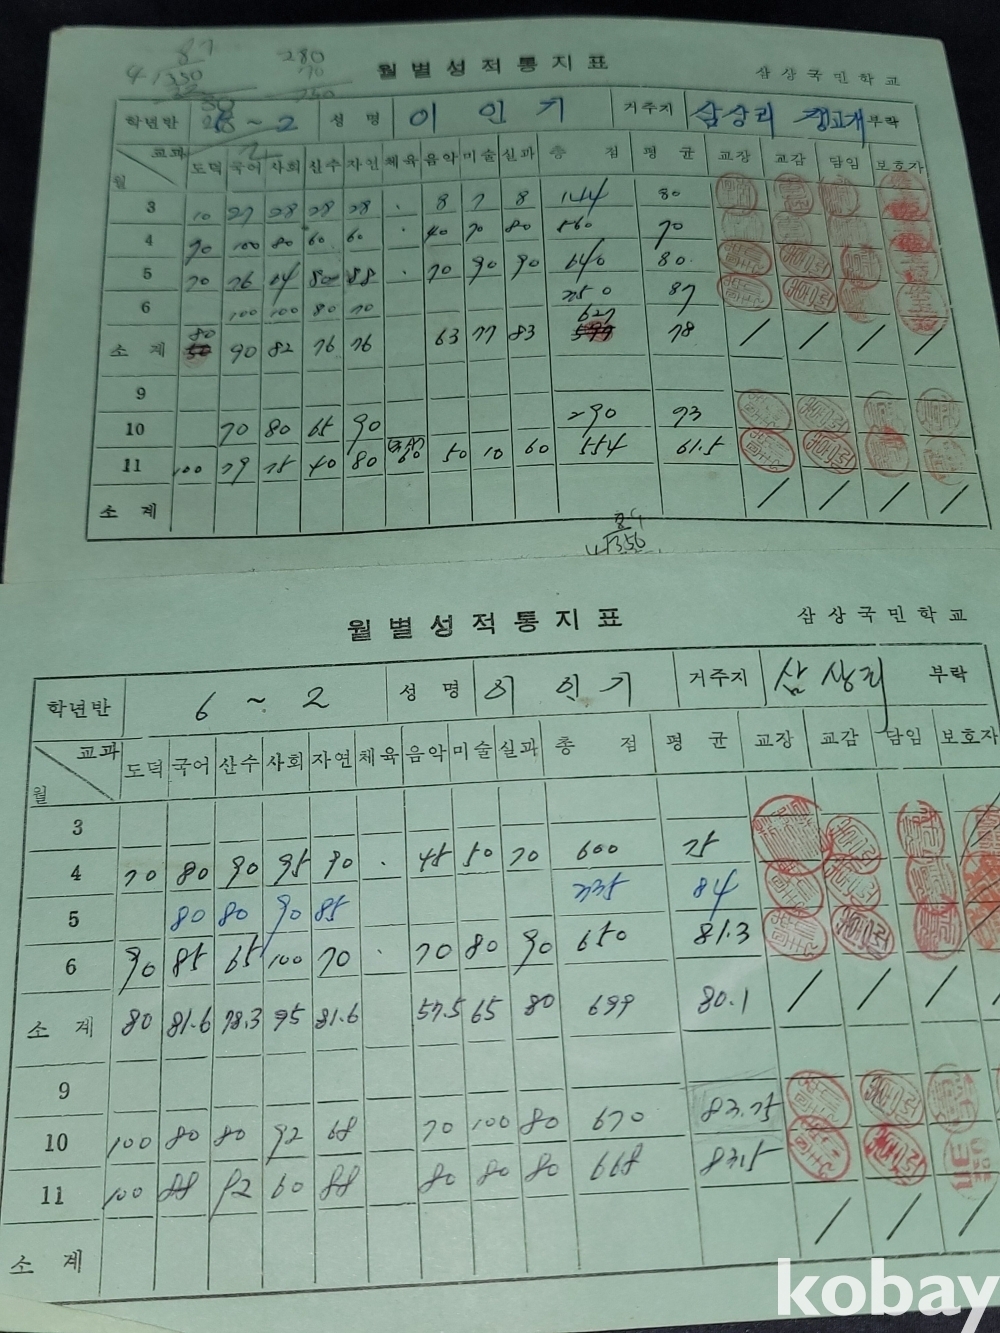 87
4)350
280
70
월별성적통지표
삼상국민학교
학년반 ~ 2 성명 이인기 거주지 삼상리 부락
교과 월 도덕 국어 사회 산수 자연 체육 음악 미술 실과 총점 평균 교장 교감 담임 보호자
3 10 27 28 28 28 · 8 7 8 144 80
4 70 100 80 60 60 · 40 70 80 560 70
5 70 76 84 80 88 · 70 90 90 640 80.
6 100 100 80 70 350 87
소계 80 90 82 76 76 63 77 83 627 78 / / / /
9
10 70 80 65 90 290 73
11 100 79 75 40 80 60 50 10 60 554 61.5
소계 / / / /
4)350
월별성적통지표
삼상국민학교
학년반 6 ~ 2 성명 이인기 거주지 삼상리 부락
교과 월 도덕 국어 산수 사회 자연 체육 음악 미술 실과 총점 평균 교장 교감 담임 보호자
3
4 70 80 90 95 90 · 45 50 70 600 75
5 80 80 90 85 335 84
6 90 85 65 100 70 · 70 80 90 650 81.3
소계 80 81.6 78.3 95 81.6 57.5 65 80 699 80.1 / / / /
9
10 100 80 80 92 68 70 100 80 670 83.75
11 100 88 92 60 88 80 80 80 668 83.5
소계 / / /
kobay